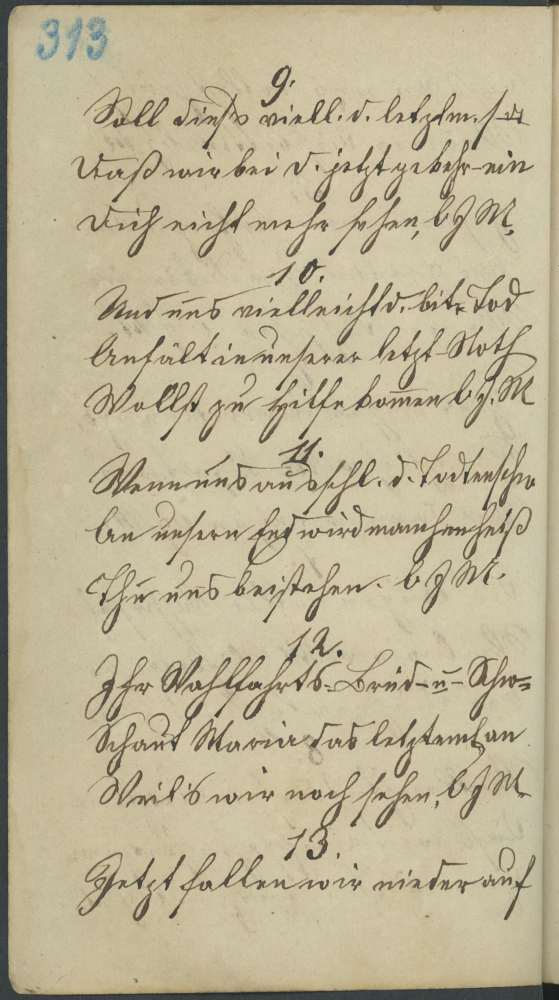 313
9.
Soll dieß viell. d. letztem. s
Daß wir bei d. jetzt gekehr-ein
Dich nicht mehr sehen, b J M.
10.
Und uns vielleicht d. bitr. Tod
Anfält in unserer letzt Noth
Wollst zu Hilfe kom̄en b J. M
11.
Wenn uns ausschl. d. Todtenschw
An unsern End wird manchen heiß
Thu uns beistehen. b J M.
12.
Ihr Wahlfahrts-Brüd- u- Schw=
Schaut Maria das letzteml an
Weil's wir noch sehen, b J M.
13.
Jetzt fallen wir nieder auf